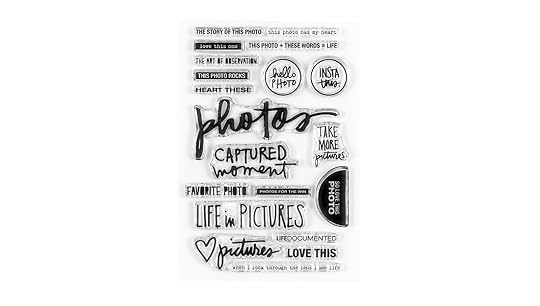 THE STORY OF THIS PHOTO
this photo has my heart
love this one
THIS PHOTO + THESE WORDS = LIFE
THE ART OF OBSERVATION
THIS PHOTO ROCKS
HEART THESE
hello
PHOTO
INSTA
this.
photos
TAKE
MORE
pictures
CAPTURED
moment
FAVORITE PHOTO
PHOTOS FOR THE WIN
SO LOVE THIS
PHOTO
LIFE in PICTURES
LIFEDOCUMENTED
pictures
LOVE THIS
when I look through the lens I see life